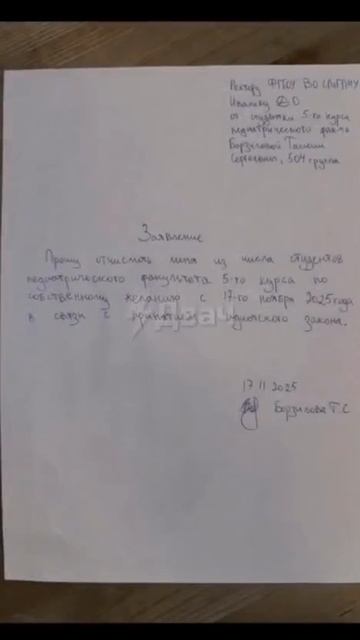 Ректору ФГБОУ ВО СПбГПМУ
Иванову Д О
от студентки 5-го курса
педиатрического фак-та
Борзиловой Таисии
Сергеевны, 504 группа
Заявление
Прошу отчислить меня из числа студентов
педиатрического факультета 5-го курса по
собственному желанию с 17-го ноября 2025 года
в связи с принятием идиотского закона.
Двач
17 11 2025
Борзилова Т.С